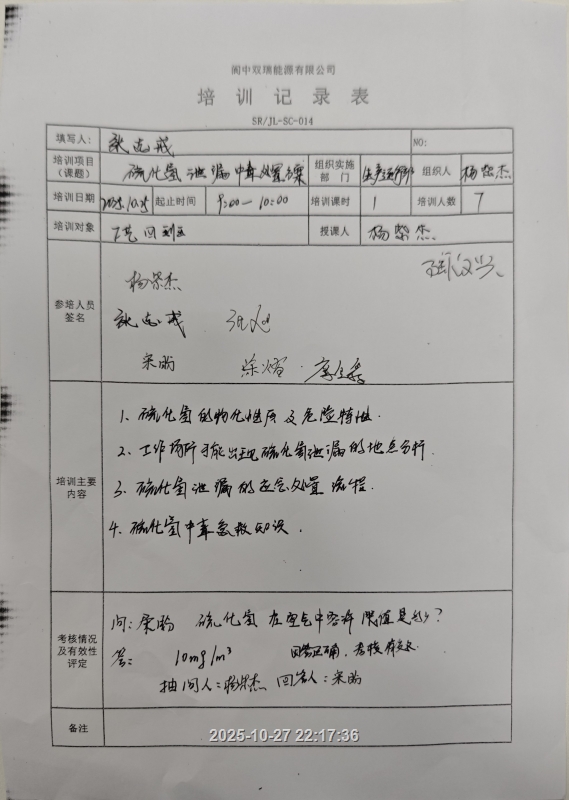 阆中双瑞能源有限公司
培 训 记 录 表
SR/JL-SC-014
填写人： NO:
培训项目（课题） 硫化氢泄漏中毒处置 组织实施部门 生产运行部 组织人 杨紫杰
培训日期 2025.10.25 起止时间 9:00—10:00 培训课时 1 培训人数 7
培训对象 授课人 杨紫杰
参培人员签名
杨紫杰
宋瀚
培训主要内容
1、硫化氢的物化性质及危险特性.
2、工作场所可能出现硫化氢泄漏的地点分析.
3、硫化氢泄漏的应急处置流程.
4、硫化氢中毒急救知识.
考核情况及有效性评定
问: 宋瀚 硫化氢在空气中容许限值是多少?
答: 10mg/m³ 回答正确，考核有效.
抽问人：杨紫杰 回答人：宋瀚
备注
2025-10-27 22:17:36